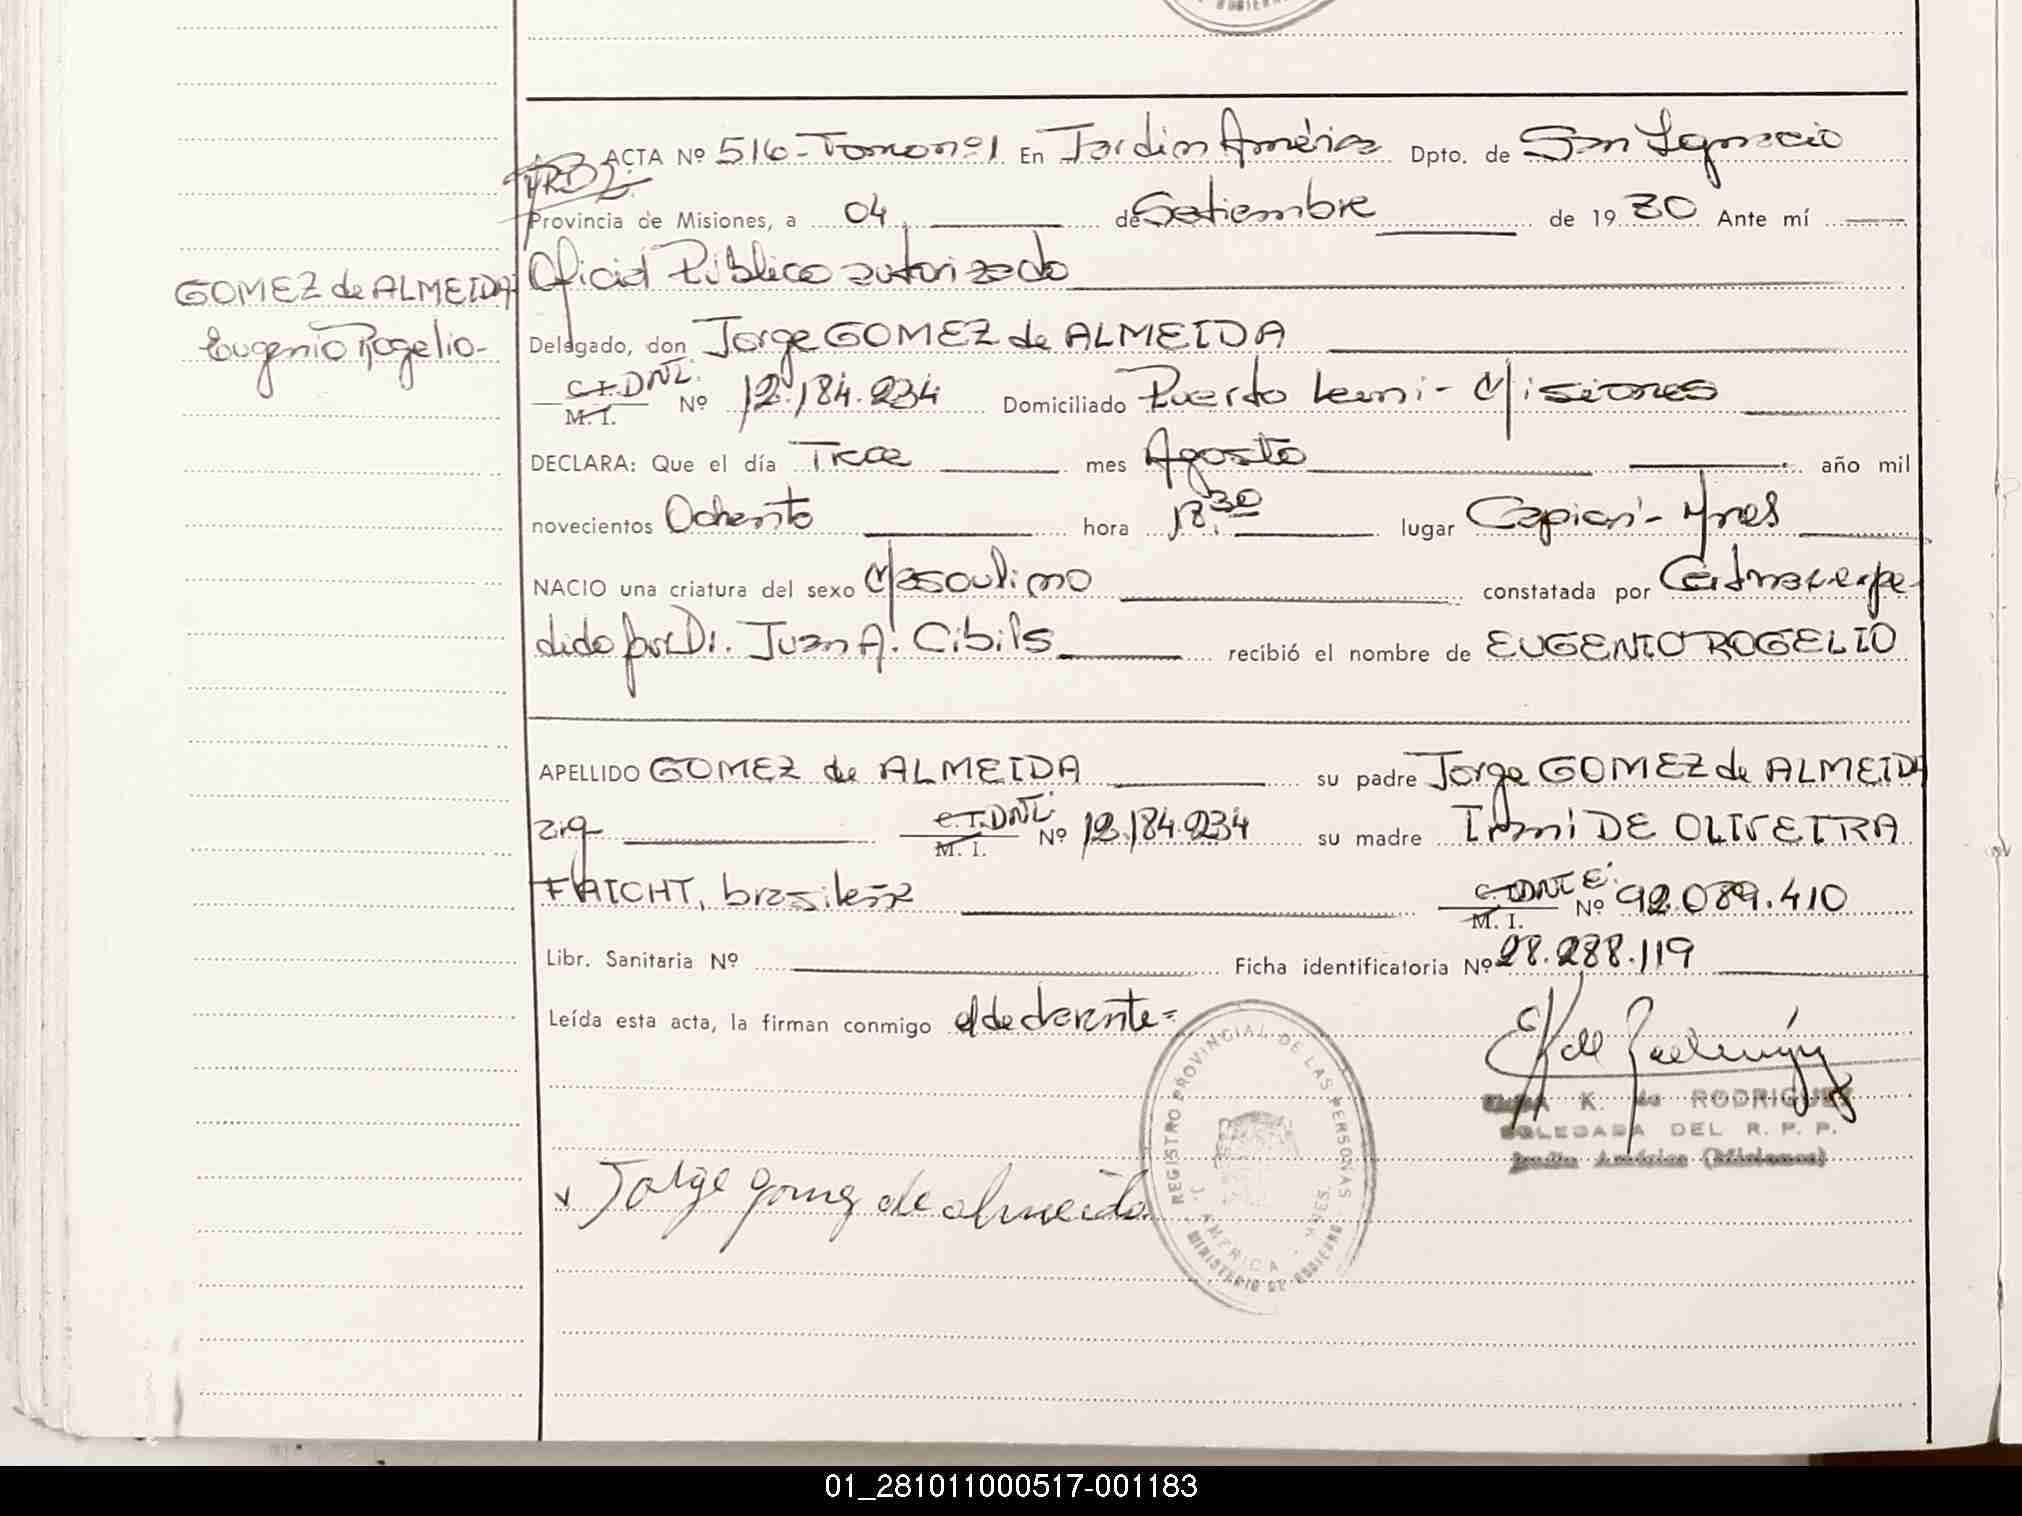 ACTA Nº 516-Tomo nº1 En Jardin América Dpto. de San Ignacio
Provincia de Misiones, a 04 de Setiembre de 1980 Ante mí
Oficial Público autorizado
GOMEZ de ALMEIDA
Eugenio Rogelio-
Delegado, don Jorge GOMEZ de ALMEIDA
C.I. DNI.
M. I. Nº 12.184.234 Domiciliado Puerto Leoni - Misiones
DECLARA: Que el día Trece mes Agosto año mil
novecientos Ochenta hora 18.30 lugar Capioví - Mnes
NACIO una criatura del sexo Masculino constatada por
dido por Dr. Juan A. Cibils recibió el nombre de EUGENIO ROGELIO
APELLIDO GOMEZ de ALMEIDA su padre Jorge GOMEZ de ALMEIDA
arg C.I. DNI.
M. I. Nº 12.184.234 su madre Irmi DE OLIVEIRA
brasileña C.I. DNI E.
M. I. Nº 92.089.410
Libr. Sanitaria Nº Ficha identificatoria Nº 28.288.119
Leída esta acta, la firman conmigo el declarante=
REGISTRO PROVINCIAL DE LAS PERSONAS
J. AMERICA - MNES.
MINISTERIO DE GOBIERNO
K. de RODRIGUEZ
DELEGADA DEL R. P. P.
Jardín América (Misiones)
Jorge gomez de almeida
01_281011000517-001183